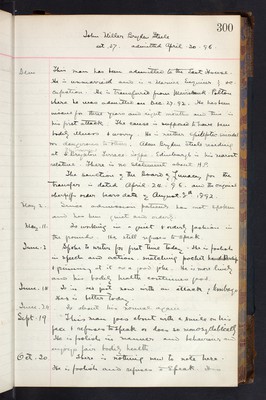 300
John Millar Bryden Steele
aet. 27. admitted April. 20. 96
This man has been admitted to the East House.
He is unmarried and is a Marine Engineer by oc-
cupation. He is transferred from
where he was admitted on Dec 23. 92. He has been
insane for three years and eight months and this is
his first attack. The cause is supposed to have been
bodily illness & worry. He is neither epileptic, suicidal
or dangerous to others. Adam Bryden Steele residing
at Edinburgh is his nearest
relative. There is no statement about H.P.
The sanction of the Board of Lunacy for the
transfer is dated April 20. 96. and the original
sheriff's order bears date of August 3rd 1892.
May. 2. Since admission patient has not spoken
and has been quiet and orderly.
May. 11. Is working in a quiet & orderly fashion in
the grounds. He still refuses to speak
June. 2. Spoke to writer for first time today. He is foolish
in speech and action: snatching pocket handkerchief
& grinning at it as a good joke. He is now
and his bodily health continues good
June. 18. Is in bed just now with an attack of lumbago.
Has is better today.
June. 30. Is about his normal again.
Sept. 19. This man goes about with a smile on his
face & refuses to speak or does so monosyllabically.
He is foolish in manner and behaviour and
enjoys fair bodily health.
Oct. 20. There is nothing new to note here.
He is foolish and refuses to speak.